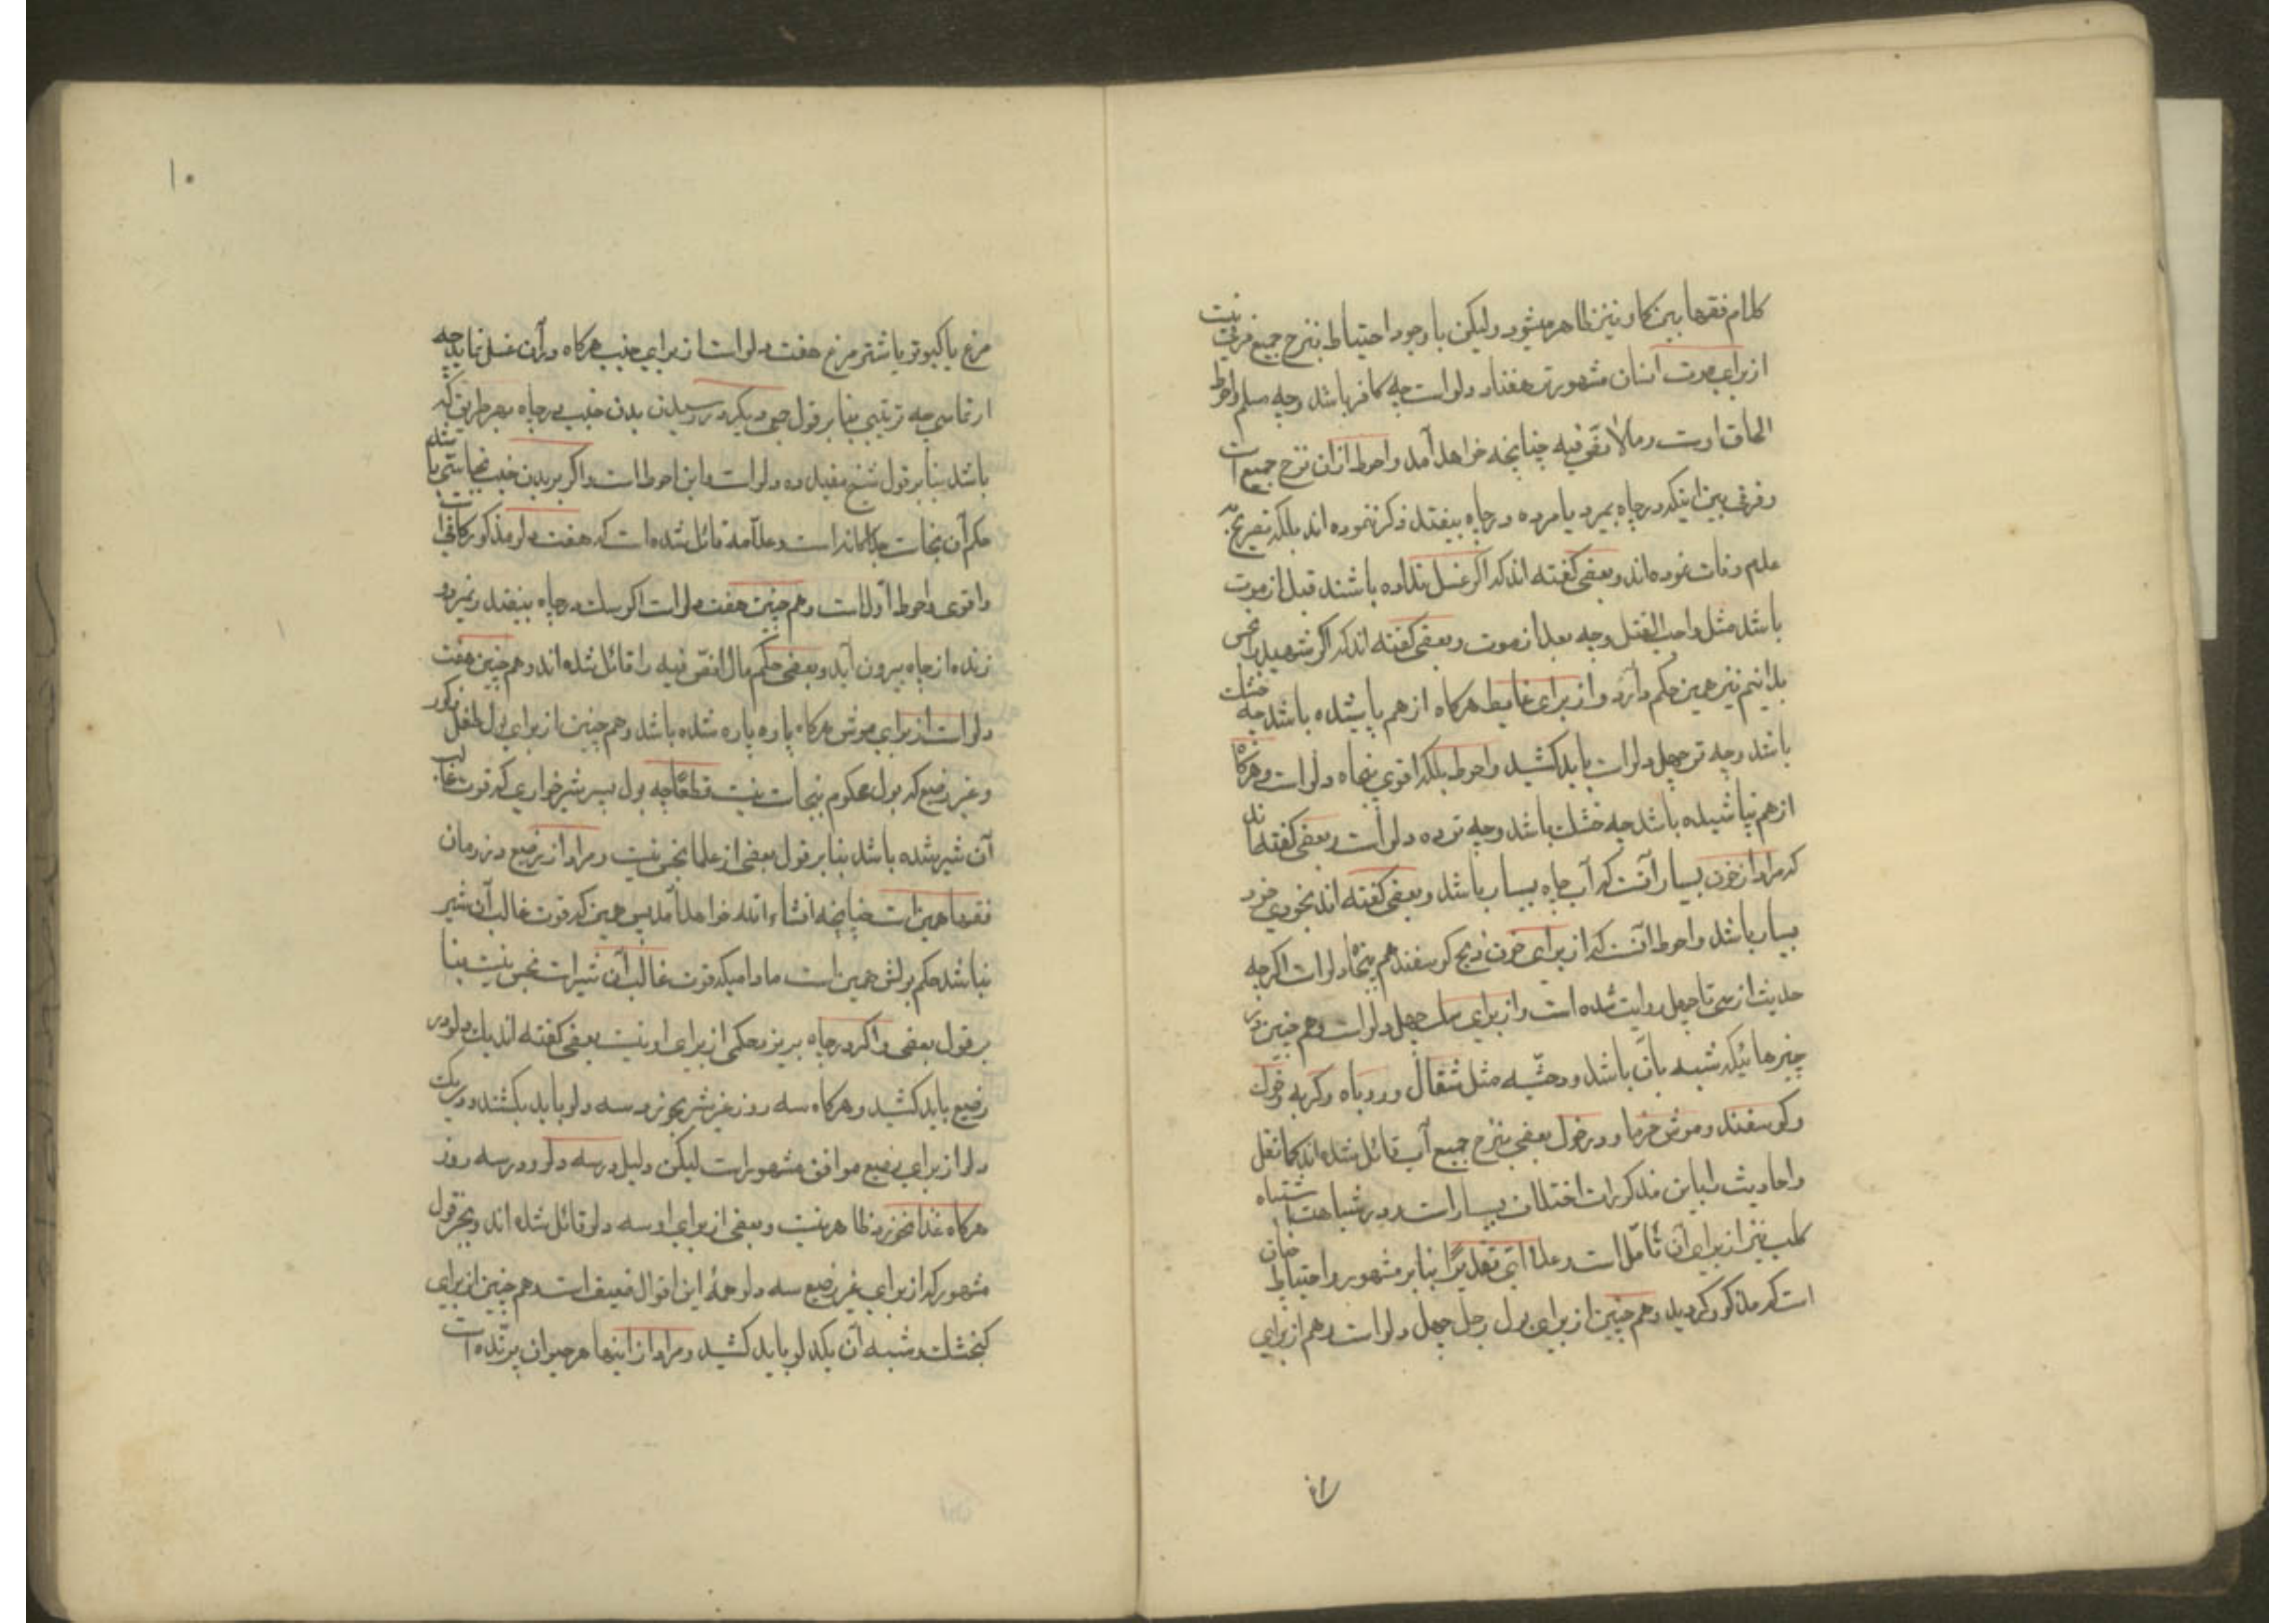 کلام فقها بین کاو نیز ظاهر میشود ولیکن با وجود احتیاط بنزح جمیع فرقی نیست
از برای موت انسان مشهورتر هفتاد دلو است چه کافر باشد وچه مسلم واحوط
الحاق اوست بمالا نص فیه چنانچه خواهد آمد واحوط از ان نزح جمیع است
وفرقی بین اینکه در چاه بمیرد یا مرده در چاه بیفتد ذکر ننموده اند بلکه تصریح بر
عدم فرقات نموده اند وبعضی کفته اند که اکر غسل نداده باشند قبل از موت
باشد مثل واجب القتل وچه بعد از موت وبعضی کفته اند که اکر شهید را نجس
بدانیم نیز همین حکم دارد واز برای غایط هرکاه از هم پاشیده باشد چه خشک
باشد وچه تر چهل دلو است باید کشید واحوط بلکه اقوی پنجاه دلو است وهرکاه
از هم نپاشیده باشد چه خشک باشد وچه تر ده دلو است وبعضی کفته اند
که مراد از خون بسیار آنست که آب چاه بسیار باشد وبعضی کفته اند بخودی خود
بسیار باشد واحوط آنست که از برای خون ذبح کوسفند هم پنجاه دلو است اکرچه
حدیث از سی تا چهل روایت شده است واز برای سک چهل دلو است وهم چنین در
چیزهائیکه شبیه بآن باشد ودر جثه مثل شغال وروباه وکربه وخوک
وکوسفند وموش خرما ودر خوک بعضی بنزح جمیع آب قائل شده اند کما نقل
واحادیث را باین مذکورات اختلاف بسیار است ودر شباهت اشتباه
کلب نیز از برای آن تأملست وعلی ای تقدیر بنابر مشهور واحتیاط چنان
است که مذکور کردید وهم چنین از برای بول رجل چهل دلو است وهم از برای
۱۰
مرغ یا کبوتر یا شتر مرغ هفت دلو است از برای جنب هرکاه در آن غسل نماید چه
ارتماسی چه ترتیبی بنابر قول جمعی دیکر در رسیدن بدن جنب در چاه بهر طریق که
باشد بنابر قول شیخ مفید ده دلو است واین احوط است واکر بر بدن جنب نجاستی باشد
حکم آن نجاست جداکانه است وعلامه قائل شده است که هفت دلو مذکور کافی است
واقوی واحوط اول است وهم چنین هفت دلو است اکر سک در چاه بیفتد ونمیرد و
زنده از چاه بیرون آید وبعضی حکم مالا نص فیه را قائل شده اند وهم چنین هفت
دلو است از برای موش هرکاه پاره پاره شده باشد وهم چنین از برای بول طفل ذکور
وغیر رضیع که بول محکوم بنجاست نیست قطعا چه بول پسر شیر خواری که قوت غالب
آن شیر شده باشد بنابر قول بعضی از علما نجس نیست ومراد از رضیع در زمان
فقها همین است چنانچه انشاء الله خواهد آمد پس همین که قوت غالب آن شیر
نباشد حکم بولش همین است مادامیکه قوت غالب آن شیر است نجس نیست بنا
بر قول بعضی واکر در چاه بریزد حکمی از برای او نیست بعضی کفته اند یک دلو در
رضیع باید کشید وهرکاه سه روز غیر شیر بخورد سه دلو باید بکشند ودر یک
دلو از برای رضیع موافق مشهور است لیکن دلیل در سه دلو ودر سه روز
هرکاه غذا بخورد ظاهر نیست وبعضی از برای او سه دلو قائل شده اند وبجز قول
مشهور که از برای غیر رضیع سه دلو همهٔ این اقوال ضعیف است وهم چنین از برای
کنجشک وشبه آن یکدلو باید کشید ومراد از اینها هر حیوان پرنده است